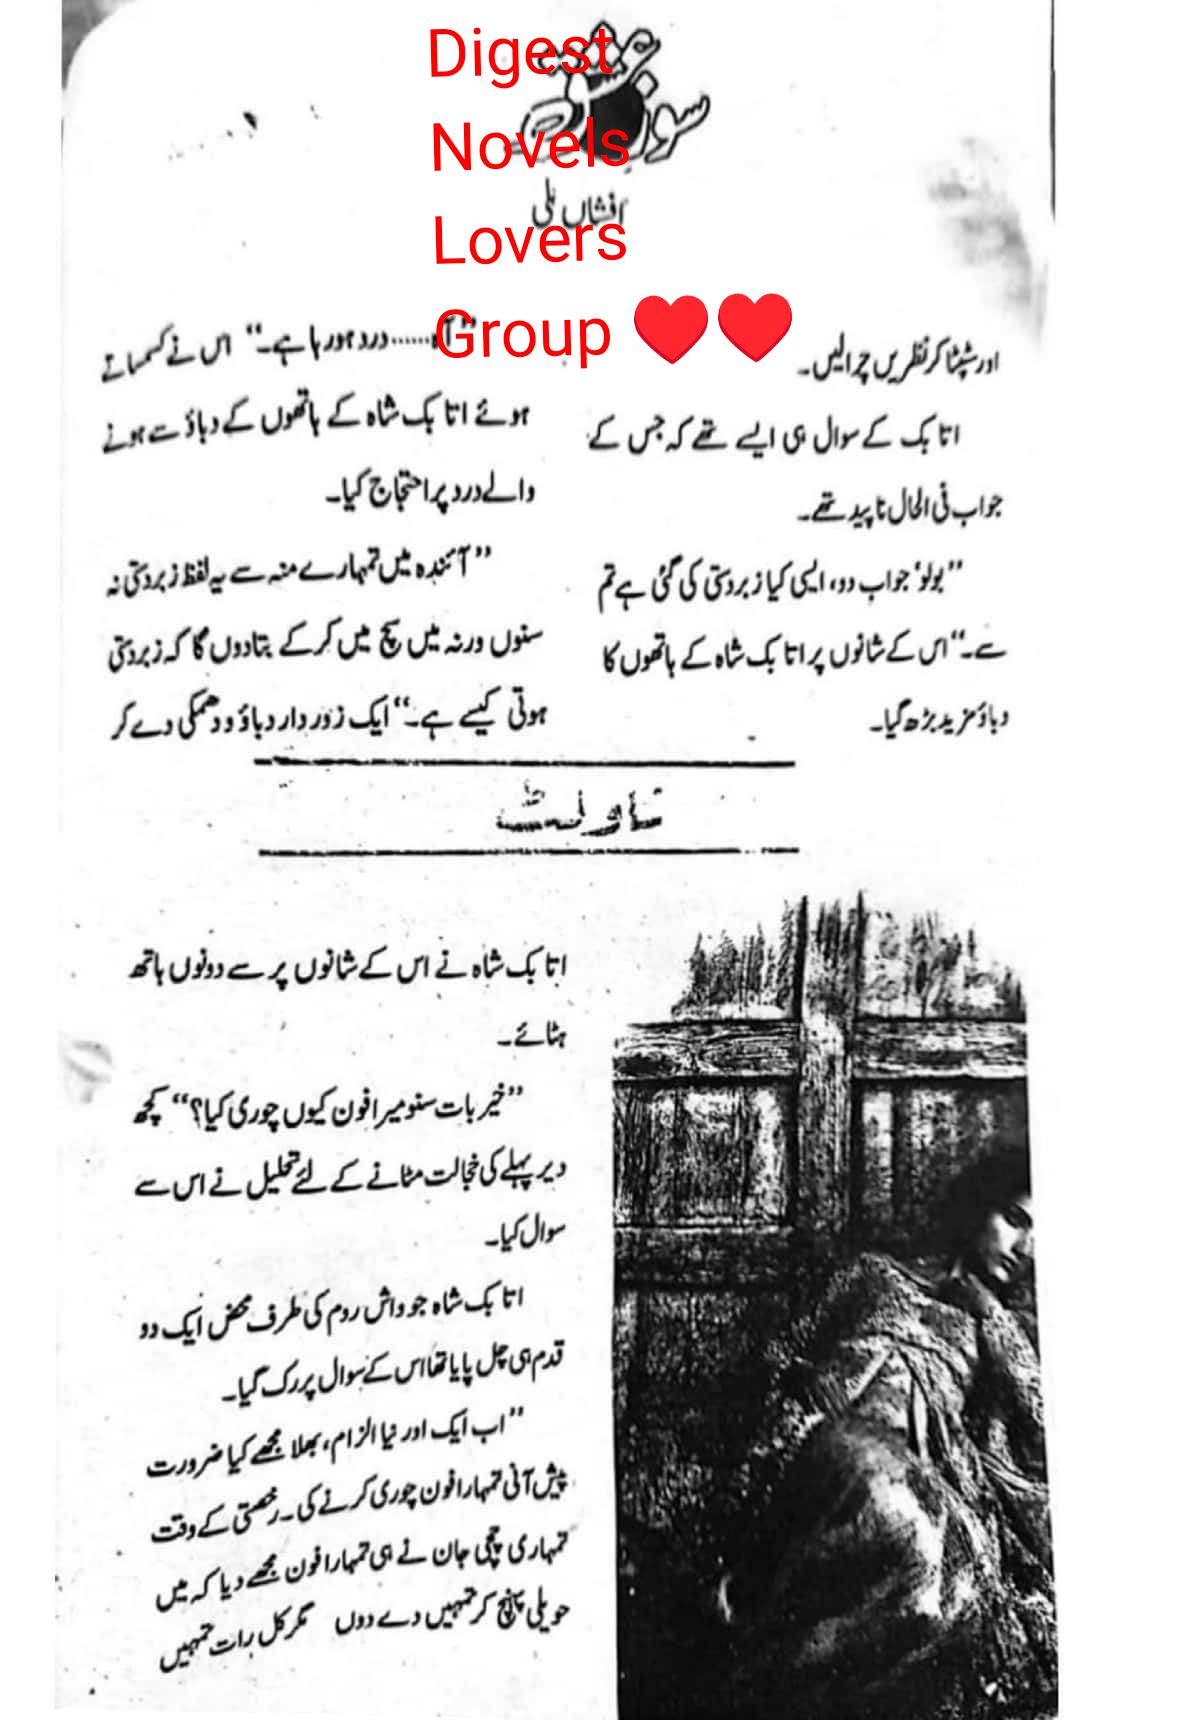 Digest
Novels
Lovers
Group ❤❤
سوز عشق
افشاں علی
اور سٹپٹا کر نظریں چرا لیں۔
اتابک کے سوال ہی ایسے تھے کہ جس کے
جواب فی الحال ناپید تھے۔
”بولو‘ جواب دو، ایسی کیا زبردستی کی گئی ہے تم
سے۔“ اس کے شانوں پر اتابک شاہ کے ہاتھوں کا
دباؤ مزید بڑھ گیا۔
”آہ......درد ہو رہا ہے۔“ اس نے کسمساتے
ہوئے اتابک شاہ کے ہاتھوں کے دباؤ سے ہونے
والے درد پر احتجاج کیا۔
”آئندہ میں تمہارے منہ سے یہ لفظ زبردستی نہ
سنوں ورنہ میں سچ میں کر کے بتادوں گا کہ زبردستی
ہوتی کیسے ہے۔“ ایک زور دار دباؤ و دھمکی دے کر
ناولٹ
اتابک شاہ نے اس کے شانوں پر سے دونوں ہاتھ
ہٹائے۔
”خیر بات سنو میرا فون کیوں چوری کیا؟“ کچھ
دیر پہلے کی خجالت مٹانے کے لئے تحلیل نے اس سے
سوال کیا۔
اتابک شاہ جو واش روم کی طرف محض ایک دو
قدم ہی چل پایا تھا اس کے سوال پر رک گیا۔
”اب ایک اور نیا الزام، بھلا مجھے کیا ضرورت
پیش آنی تمہارا فون چوری کرنے کی۔ رخصتی کے وقت
تمہاری چچی جان نے ہی تمہارا فون مجھے دیا کہ میں
حویلی پہنچ کر تمہیں دے دوں مگر کل رات تمہیں